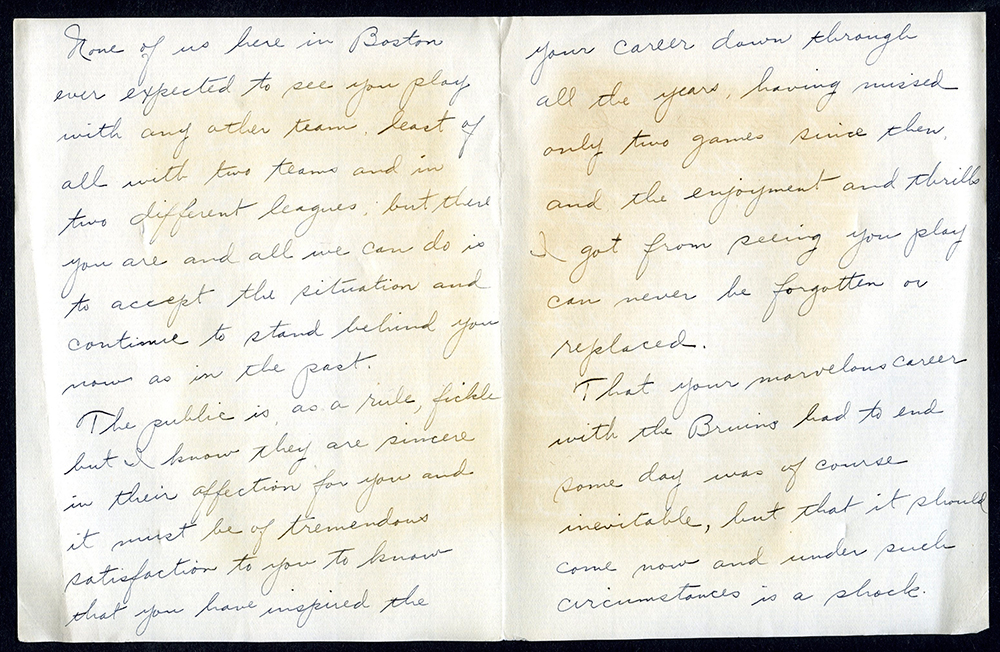 None of us here in Boston
ever expected to see you play
with any other team, least of
all with two teams and in
two different leagues; but there
you are and all we can do is
to accept the situation and
continue to stand behind you
now as in the past.
The public is, as a rule, fickle
but I know they are sincere
in their affection for you and
it must be of tremendous
satisfaction to you to know
that you have inspired the
your career down through
all the years, having missed
only two games since then,
and the enjoyment and thrills
I got from seeing you play
can never be forgotten or
replaced.
That your marvelous career
with the Bruins had to end
some day was of course
inevitable, but that it should
come now and under such
circumstances is a shock.